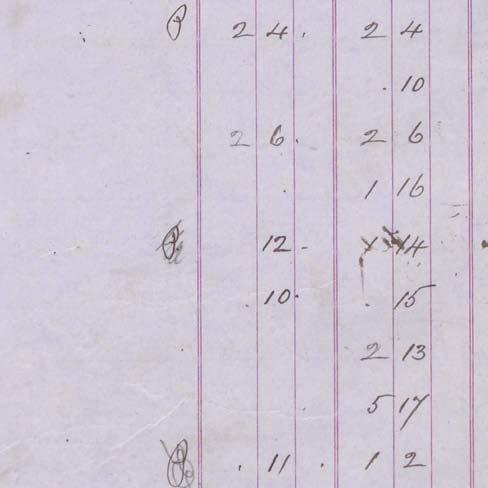 P 2 4 . 2 4
. 10
2 6 . 2 6
. 1 16
P. 12 . 1 14
. 10 . . 15
2 13
5 17
P . 11 . 1 2